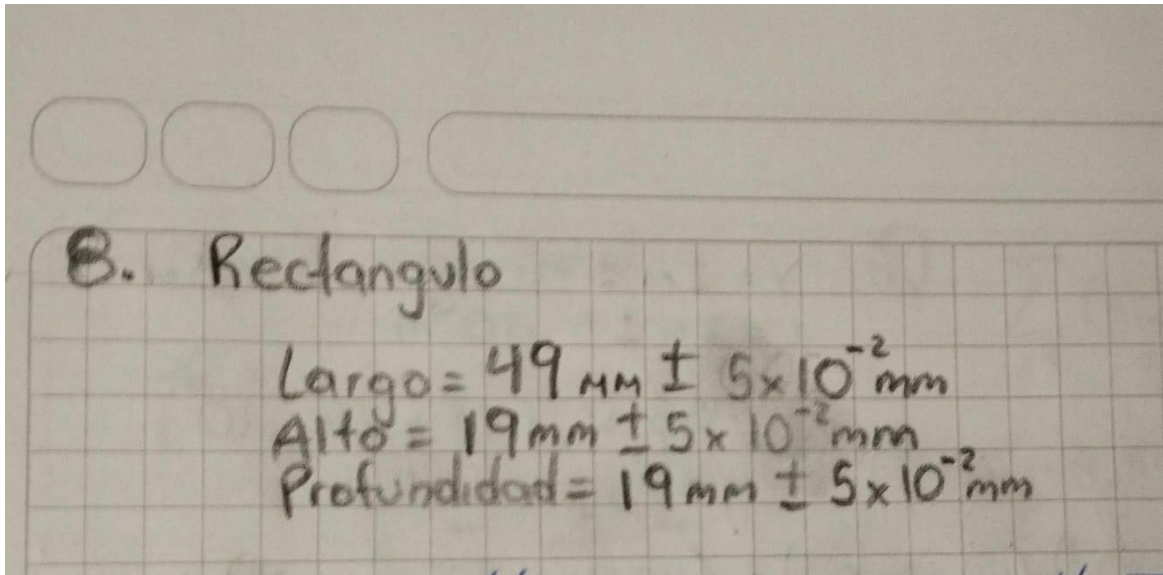 8. Rectangulo
Largo = 49 mm ± 5x10⁻² mm
Alto = 19 mm ± 5x10⁻² mm
Profundidad = 19 mm ± 5x10⁻² mm